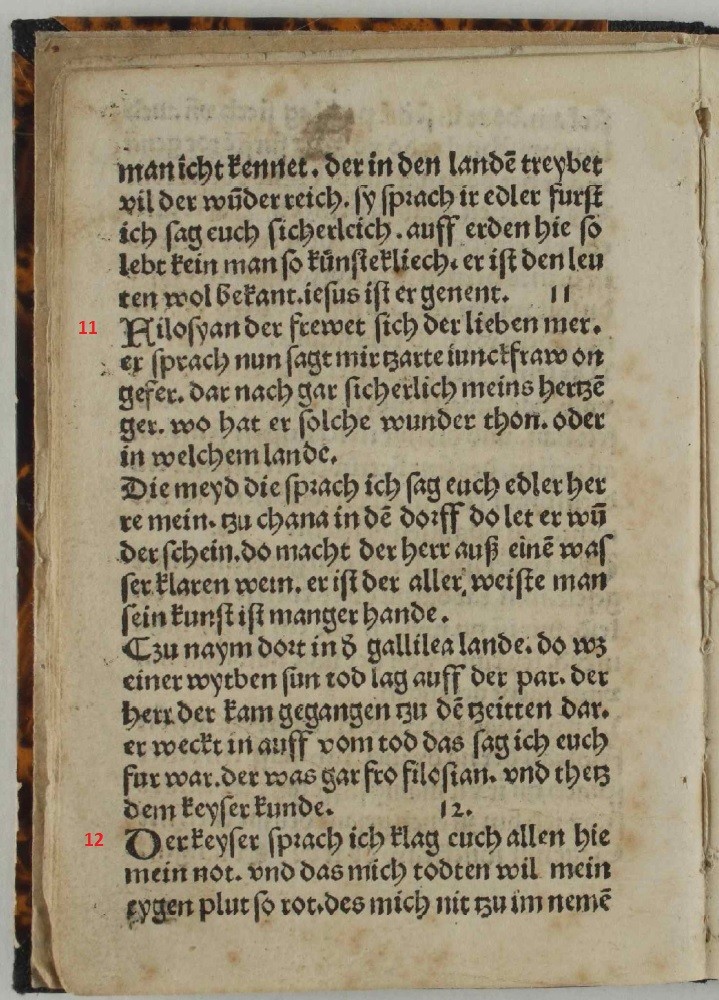 man icht kennet. der in den landē treybet
vil der wūder reich. sy sprach ir edler furst
ich sag euch sicherleich. auff erden hie so
lebt kein man so künstekliech. er ist den leu
ten wol bekant. iesus ist er genent. 11
11 Filosyander frewet sich der lieben mer.
er sprach nun sagt mir tzarte iunckfraw on
gefer. dar nach gar sicherlich meins hertzē
ger. wo hat er solche wunder thon. oder
in welchem lande.
Die meyd die sprach ich sag euch edler her
re mein. tzu chana in dē dorff do let er wū
der schein. do macht der herr auß einē was
ser klaren wein. er ist der aller weiste man
sein kunst ist manger hande.
Czu naym dort in d̕ gallilea lande. do wz
einer wytben sun tod lag auff der par. der
herr der kam gegangen tzu dē tzeitten dar.
er weckt in auff vom tod das sag ich euch
fur war. der was gar fro filosian. vnd thetz
dem keyser kunde. 12.
12 Der keyser sprach ich klag euch allen hie
mein not. vnd das mich todten wil mein
eygen plut so rot. des mich nit tzu im nemē